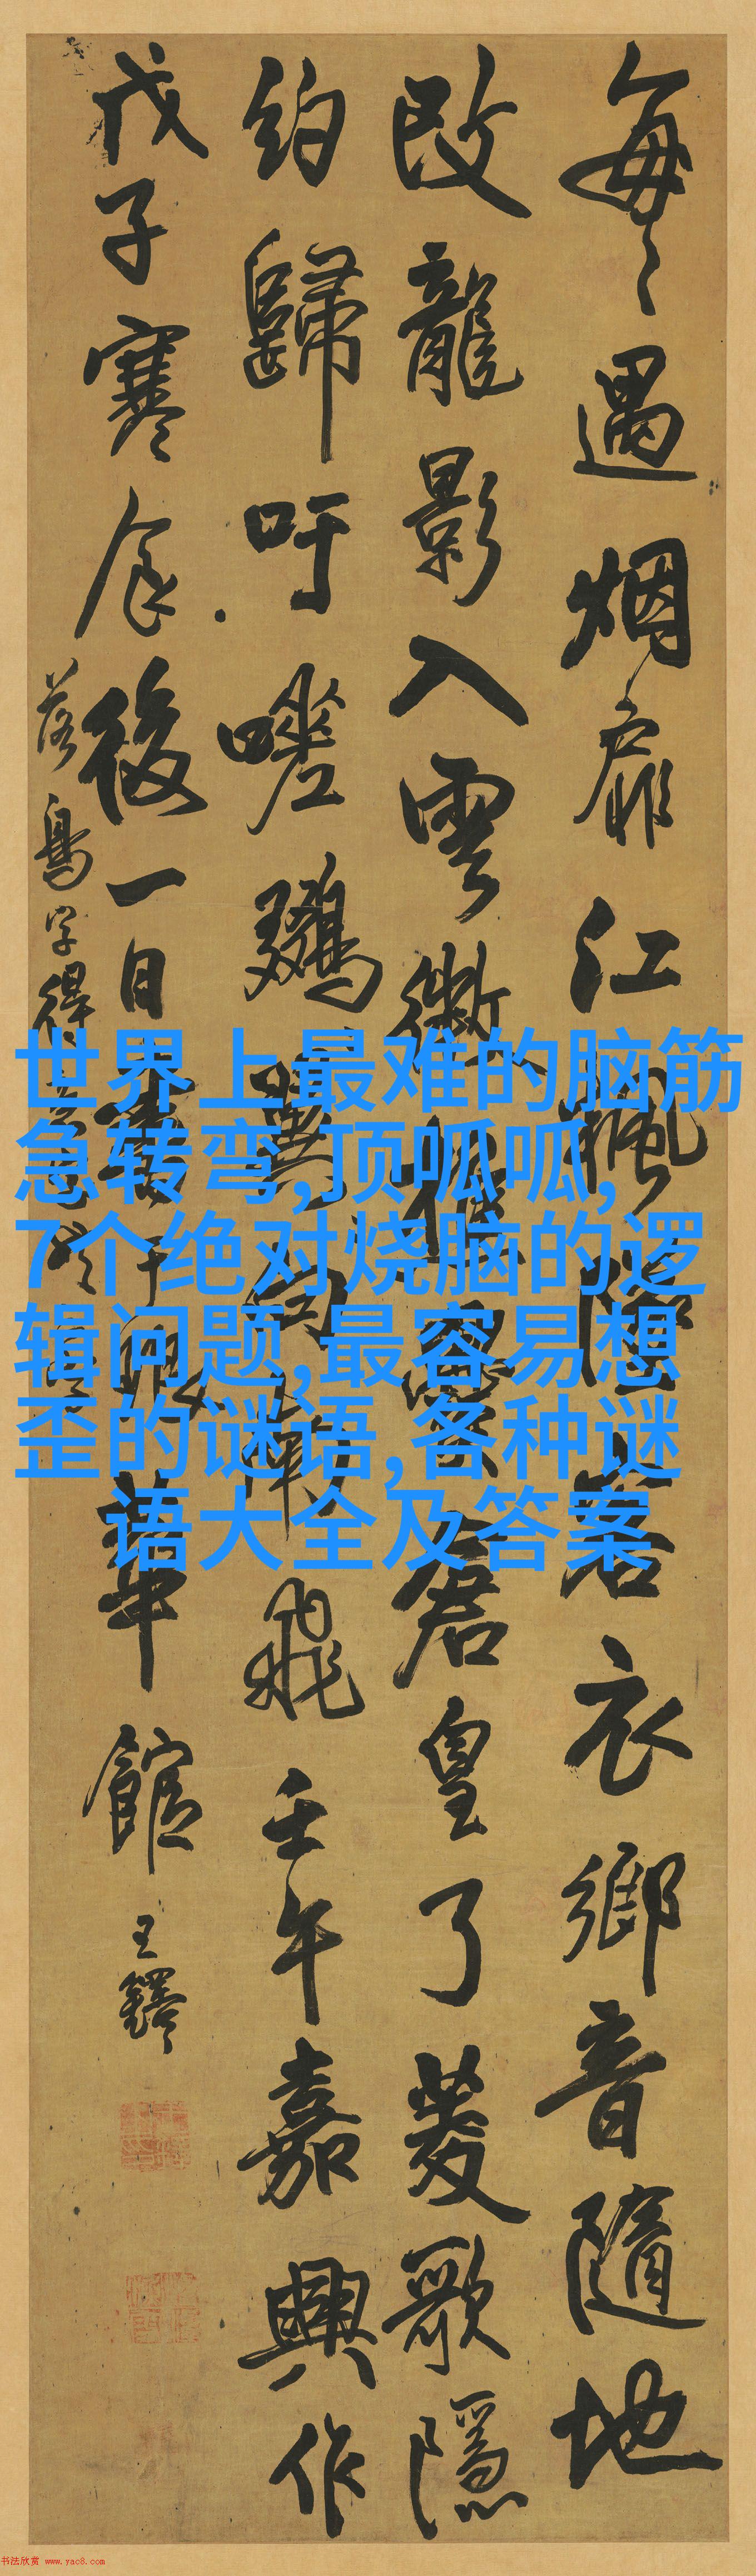 每每遇烟扉江楓隱客衣鄉音隨地
改龍影入雲微橋
倉皇了菱歌隱
約歸吁嗟鵝
飛壬午嘉興作
戊子寒食後一日書
華館
王鐸
落鳥字得
世界上最难的脑筋
急转弯,顶呱呱,
7个绝对烧脑的逻
辑问题,最容易想
歪的谜语,各种谜
语大全及答案
书法欣赏 www.yac8.com